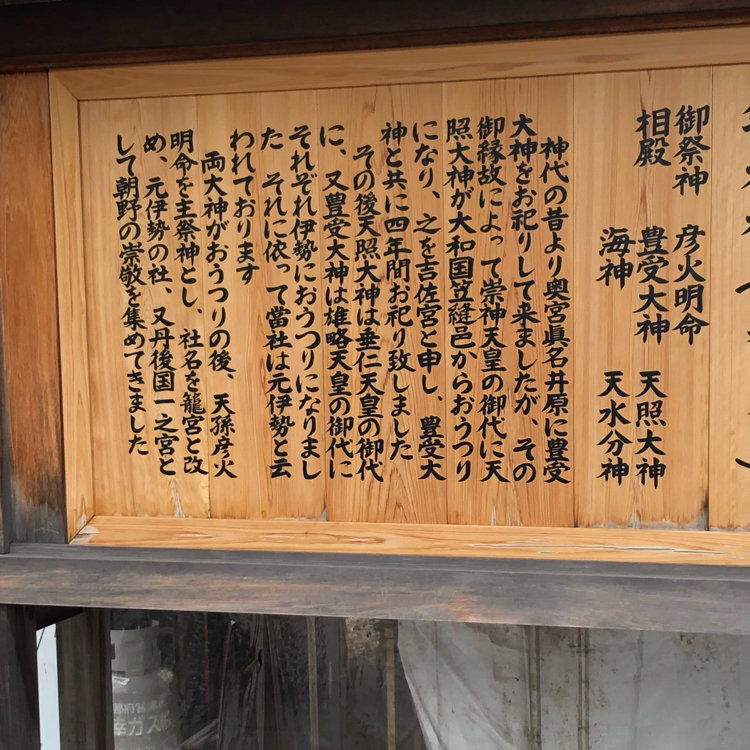 御祭神　彦火明命
相殿　豊受大神　天照大神
海神　天水分神
神代の昔より奥宮眞名井原に豊受
大神をお祀りして来ましたが、その
御縁故によって崇神天皇の御代に天
照大神が大和国笠縫邑からおうつり
になり、之を吉佐宮と申し、豊受大
神と共に四年間お祀り致しました
その後天照大神は垂仁天皇の御代
に、又豊受大神は雄略天皇の御代に
それぞれ伊勢におうつりになりまし
た　それに依って當社は元伊勢と云
われております
両大神がおうつりの後、天孫彦火
明命を主祭神とし、社名を籠宮と改
め、元伊勢の社、又丹後国一之宮と
して朝野の崇敬を集めてきました
幸ガス